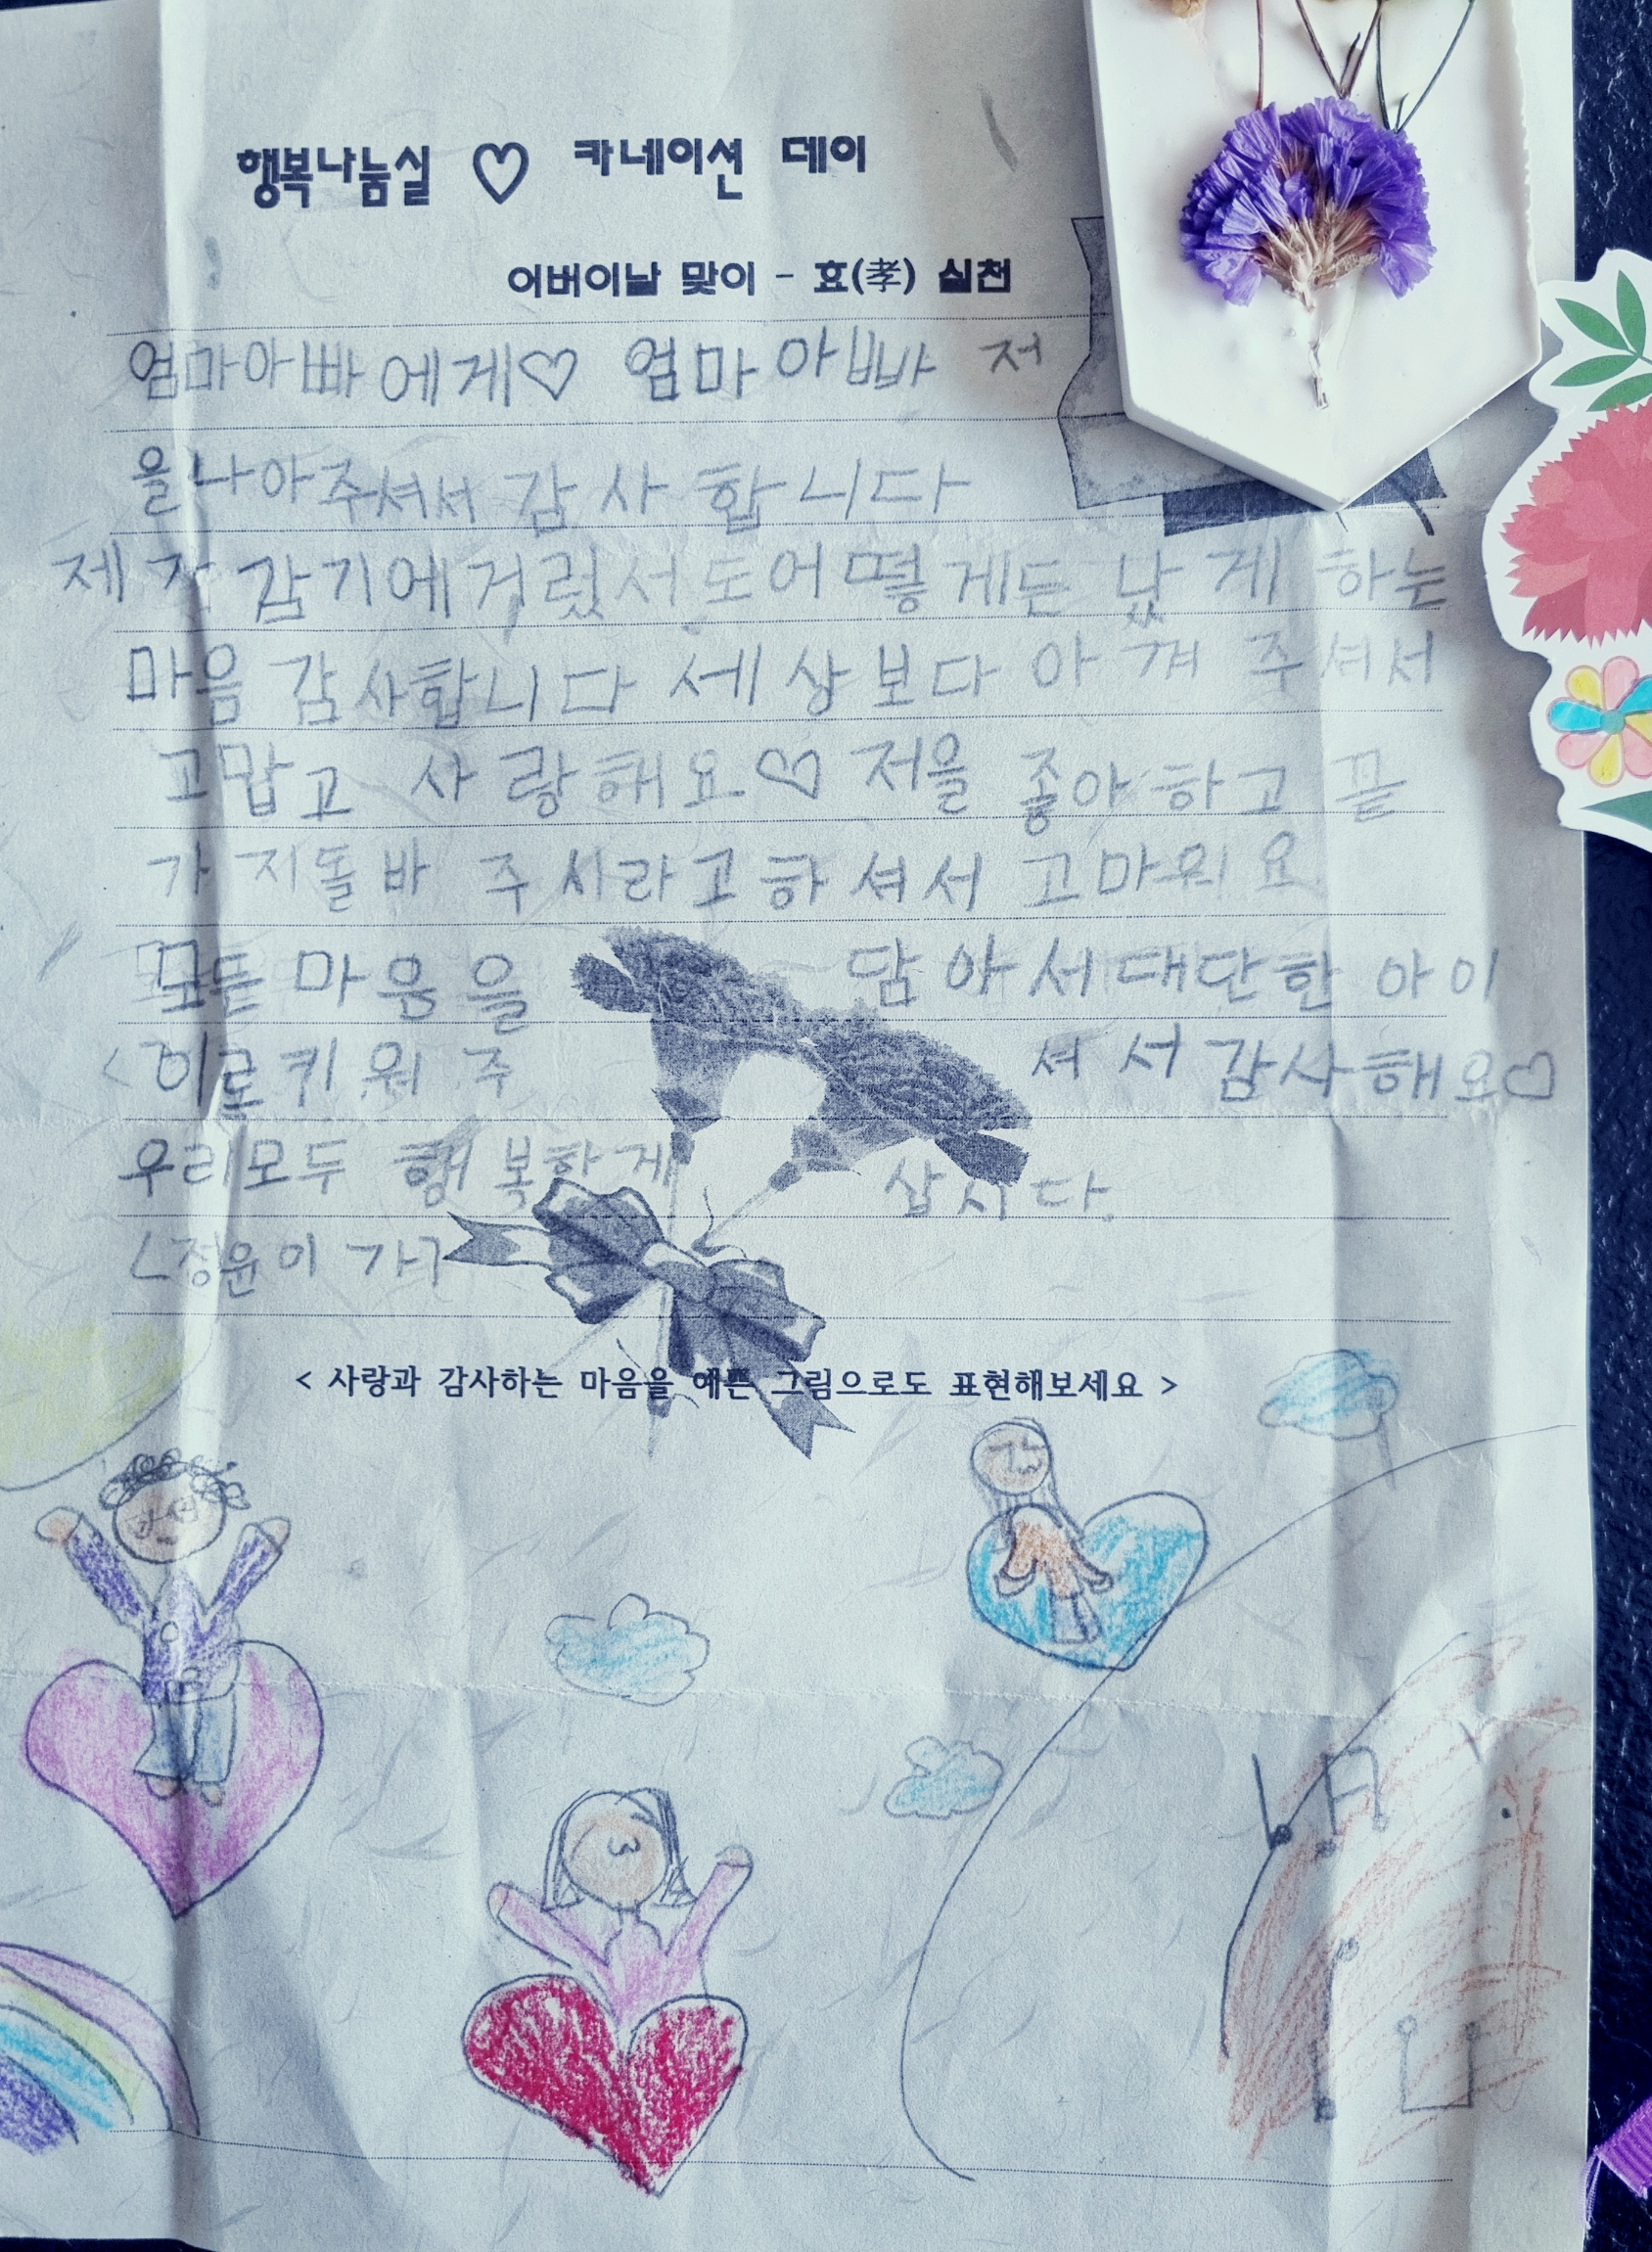 행복나눔실 ♡ 카네이션 데이
어버이날 맞이 - 효(孝) 실천
엄마아빠에게♡ 엄마아빠 저
을나아주셔서 감사합니다
제가 감기에거렀서도어떻게든 났게 하는
마음 감사합니다 세상보다 아껴 주셔서
고맙고 사랑해요♡ 저을 좋아하고 끝
가지돌바 주시라고하셔서 고마워요
모든마음을 담아서대단한 아이
<이로키워주 셔서감사해요♡
우리모두 행복한게 삽시다.
<정윤이 가
< 사랑과 감사하는 마음을 예쁜 그림으로도 표현해보세요 >